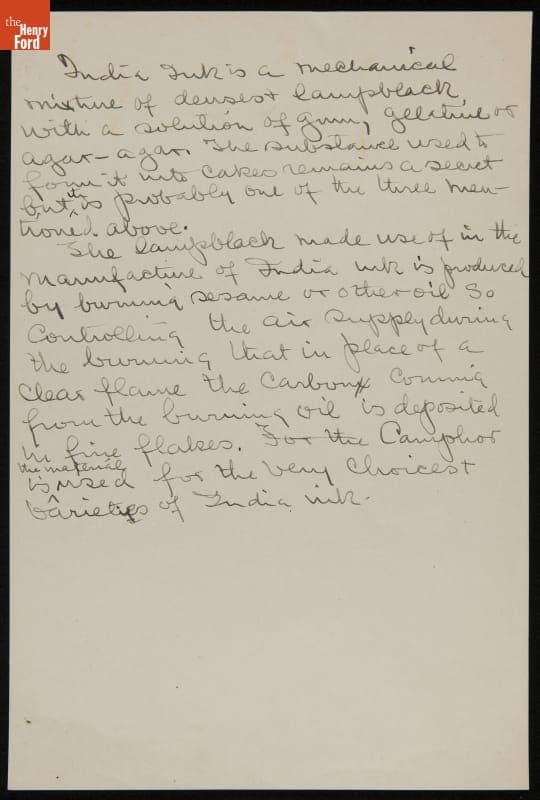 the
Henry
Ford
India Ink is a mechanical
mixture of densest lampblack
with a solution of gum, gelatine or
agar-agar. The substance used to
form it into cakes remains a secret
but it is probably one of the three men-
tioned above.
The lampblack made use of in the
manufacture of India ink is produced
by burning sesame or other oil so
controlling the air supply during
the burning that in place of a
clear flame the carbon coming
from the burning oil is deposited
in fine flakes. For the Camphor
the material
is used for the very choicest
varieties of India ink.